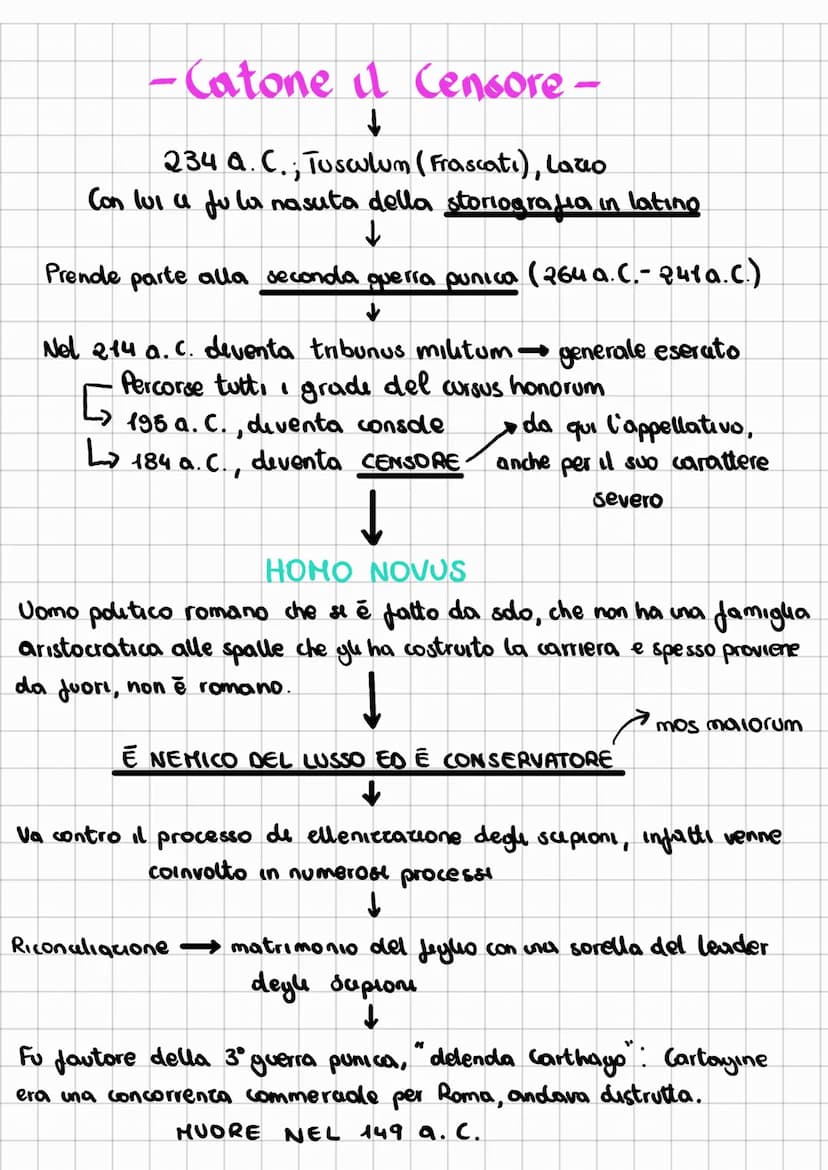 -Catone il Censore-
234 a.C.; Tusculum (Frascati), Lazio
Con lui ci fu la nascita della storiografia in latino
Prende parte alla seconda guerra punica (264 a.C.- 241 a.C.)
Nel 214 a.C. diventa tribunus militum → generale esercito
Percorse tutti i gradi del cursus honorum
195 a.C., diventa console
da qui l'appellativo,
184 a.C., diventa CENSORE
anche per il suo carattere
severo
HOMO NOVUS
Uomo politico romano che si è fatto da solo, che non ha una famiglia
aristocratica alle spalle che gli ha costruito la carriera e spesso proviene
da fuori, non è romano.
mos maiorum
È NEMICO DEL LUSSO ED È CONSERVATORE
Va contro il processo di ellenizzazione degli scipioni, infatti venne
coinvolto in numerosi processi
Riconciliazione → matrimonio del figlio con una sorella del leader
degli scipioni
Fu fautore della 3° guerra punica, "delenda Carthago": Cartagine
era una concorrenza commerciale per Roma, andava distrutta.
MUORE NEL 149 a.C.